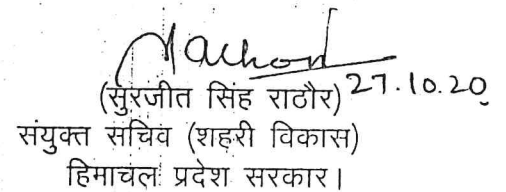 (सुरजीत सिंह राठौर) 27.10.20
संयुक्त सचिव (शहरी विकास)
हिमाचल प्रदेश सरकार।